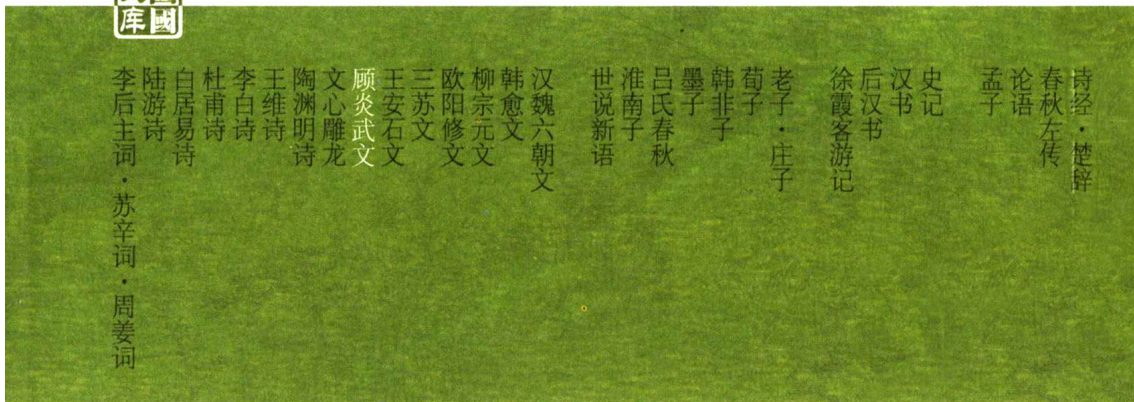 库 國
诗经·楚辞
春秋左传
论语
孟子
史记
汉书
后汉书
徐霞客游记
老子·庄子
荀子
韩非子
墨子
吕氏春秋
淮南子
世说新语
汉魏六朝文
韩愈文
柳宗元文
欧阳修文
三苏文
王安石文
顾炎武文
文心雕龙
陶渊明诗
王维诗
李白诗
杜甫诗
白居易诗
陆游诗
李后主词·苏辛词·周姜词